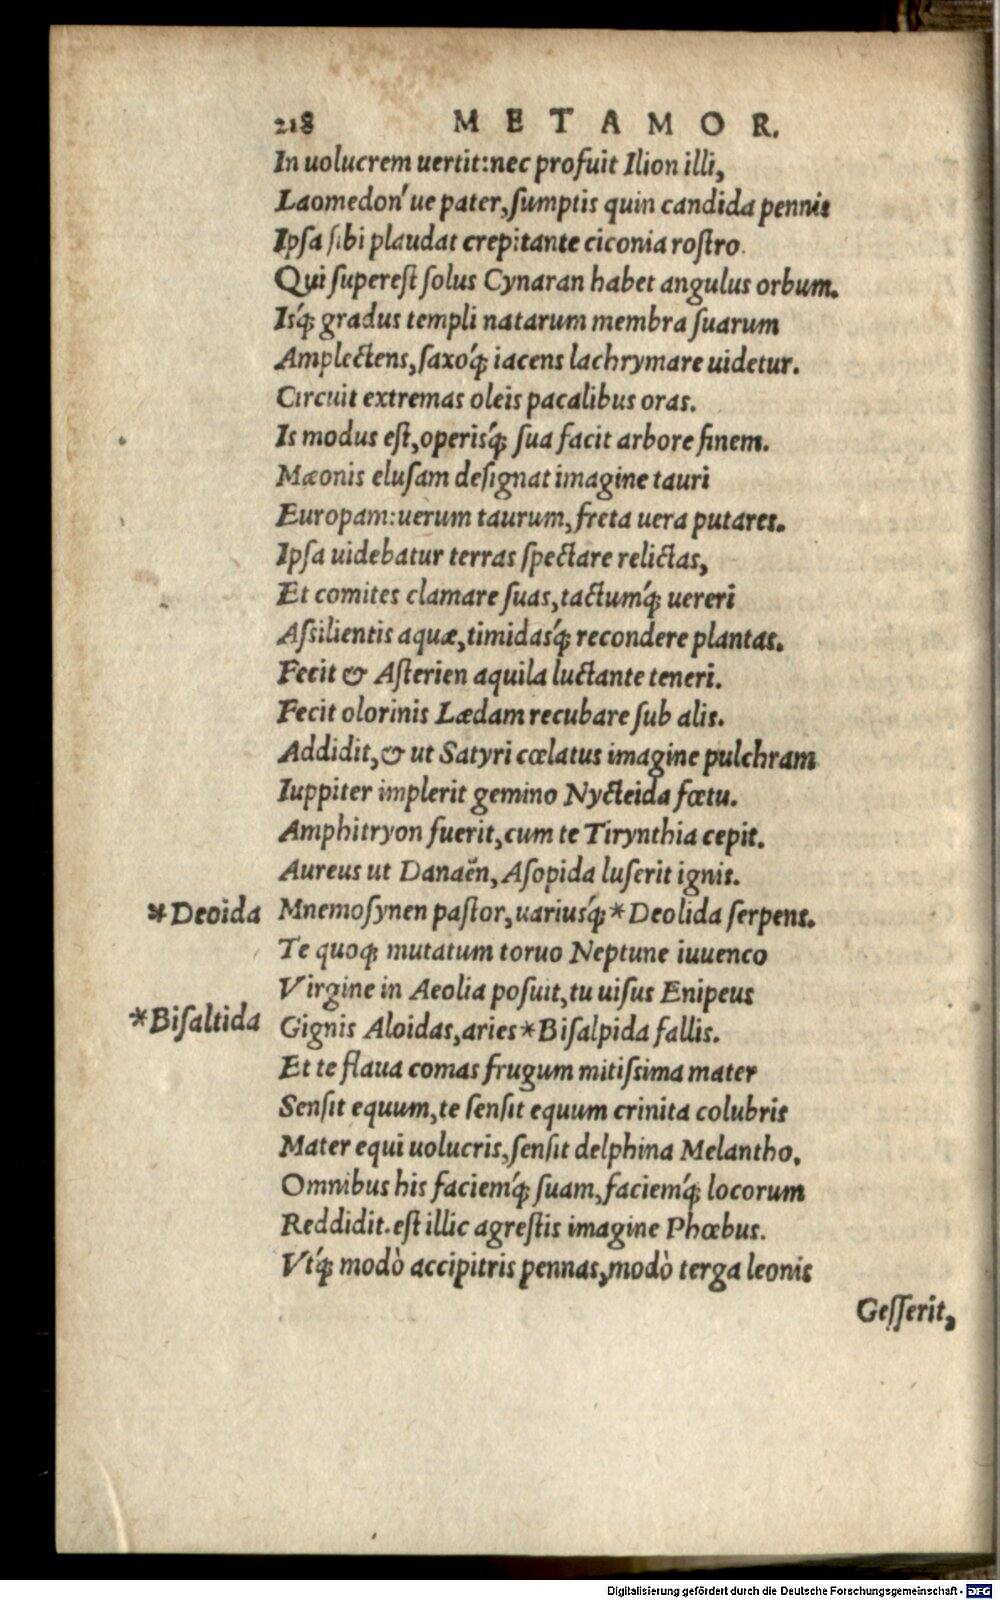 218 METAMOR.
In uolucrem uertit:nec profuit Ilion illi,
Laomedon'ue pater,ſumptis quin candida pennis
Ipſa ſibi plaudat crepitante ciconia roſtro.
Qui ſupereſt ſolus Cynaran habet angulus orbum.
Iſq́; gradus templi natarum membra ſuarum
Amplectens,ſaxoq́; iacens lachrymare uidetur.
Circuit extremas oleis pacalibus oras.
Is modus eſt,operiſq́; ſua facit arbore finem.
Mæonis eluſam deſignat imagine tauri
Europam:uerum taurum,freta uera putares.
Ipſa uidebatur terras ſpectare relictas,
Et comites clamare ſuas,tactumq́; uereri
Aſsilientis aquæ,timidasq́; recondere plantas.
Fecit & Aſterien aquila luctante teneri.
Fecit olorinis Lædam recubare ſub alis.
Addidit,& ut Satyri cœlatus imagine pulchram
Iuppiter implerit gemino Nycteida fœtu.
Amphitryon fuerit,cum te Tirynthia cepit.
Aureus ut Danaën, Aſopida luſerit ignis.
*Deoida Mnemoſynen paſtor,uariusq́;*Deolida ſerpens.
Te quoq; mutatum toruo Neptune iuuenco
Virgine in Aeolia poſuit,tu uiſus Enipeus
*Biſaltida Gignis Aloidas,aries*Biſalpida fallis.
Et te flaua comas frugum mitiſsima mater
Senſit equum,te ſenſit equum crinita colubris
Mater equi uolucris,ſenſit delphina Melantho,
Omnibus his faciemq́; ſuam,faciemq́; locorum
Reddidit.eſt illic agreſtis imagine Phœbus.
Vtq́; modò accipitris pennas,modò terga leonis
Geſſerit,
Digitalisierung gefördert durch die Deutsche Forschungsgemeinschaft - DFG